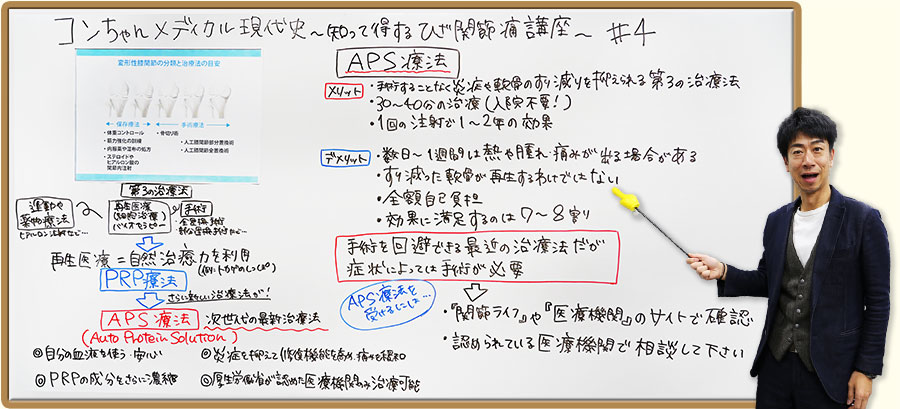 コンちゃんメディカル現代史～知って得するひざ関節痛講座～ #4
変形性膝関節の分類と治療法の目安
保存療法
手術療法
・体重コントロール
・筋力強化の訓練
・内服薬や湿布の処方
・ステロイドや
ヒアルロン酸の
関節内注射
・骨切り術
・人工膝関節部分置換術
・人工膝関節全置換術
第3の治療法
運動や
薬物療法
ヒアルロン注射など…
再生医療
(細胞治療)
バイオセラピー
手術
再生医療=自然治癒力を利用
(例:トカゲのしっぽ)
PRP療法
さらに新しい治療法が!
APS療法 次世代の最新治療法
(Auto Protein Solution)
◎自分の血液を使う・安心
◎PRPの成分をさらに濃縮
◎炎症を抑えて(修復機能を高め)痛みを緩和
◎厚生労働省が認めた医療機関のみ治療可能
APS療法
メリット
・手術することなく炎症や軟骨のすり減りを抑えられる第3の治療法
・30～40分の治療(入院不要!)
・1回の注射で1～2年の効果
デメリット
・数日～1週間は熱や腫れ・痛みが出る場合がある
・すり減った軟骨が再生するわけではない
・全額自己負担
・効果に満足するのは7～8割り
手術を回避できる最近の治療法だが
症状によっては手術が必要
APS療法を
受けるには…
・『関節ライフ』や『医療機関』のサイトで確認
・認められている医療機関で相談して下さい